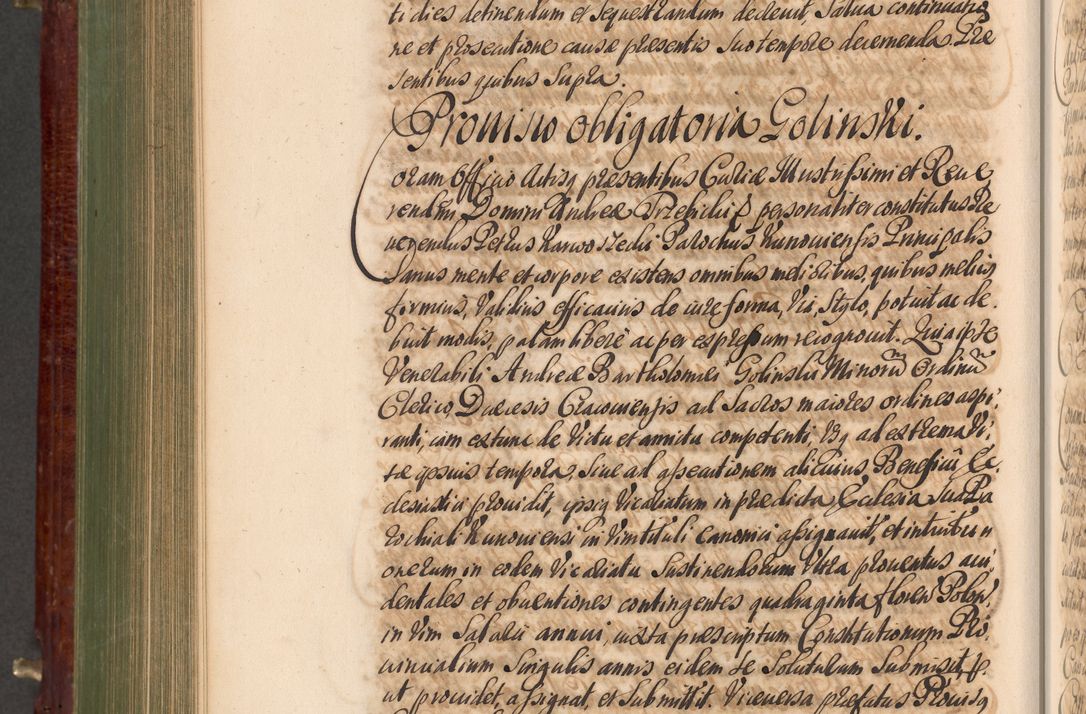 ti dies detinendum et sequestrandum decreuit, salua continuatio
ne et prosecutione causæ præsentis suo tempore decernenda. Præ
sentibus quibus supra.
Prouisio obligatoria Golinski.
Coram Officio Actisq præsentibus Curiæ Illustrissimi et Reue
rendm̃ Domini Andreæ personaliter constitutus Re
uerendus Petrus Parochus Kunouiensis Principalis
sanus mente et corpore existens omnibus melioribus, quibus melius
firmius, validius efficacius de iure forma, via, stylo, potuit ac de
buit modis, palam libere ac per expressum recognouit. Quia ipse
Venerabili Andreæ Bartholomæi Golinski Minorũ Ordinũ
Clerico Diæcesis Cracouiensis ad Sacros maiores ordines aspi,
ranti, iam ex tunc de victu et amictu competenti, usq ad extrema vi,
tæ ipsius tempora, siue ad assecutionem alicuius Beneficij Ec
clesiastici prouidit, ipsiq Vicariatum in prædicta Ecclesia sua Pa
rochiali Kunouiensi in vim tituli canonici assignauit, et intuitu
onerum in eodem Vicariatu sustinendorum vltra prouentus acci,
dentales et obuentiones contingentes quadraginta floren Polon,
in vim Salarii annui, iuxta præscriptum Constitutionum Pro
uincialium singulis annis eidem se soluturum submisit,
ut prouidet, assignat et submittit. Viceuersa præfatus Prouisq